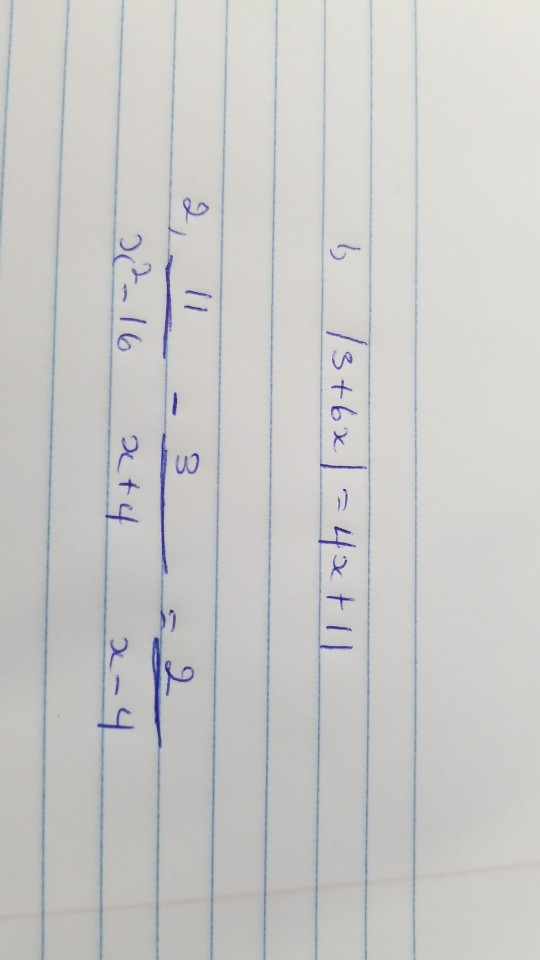 1, |3+6x| = 4x+11
2, 11/x²-16 - 3/x+4 = 2/x-4